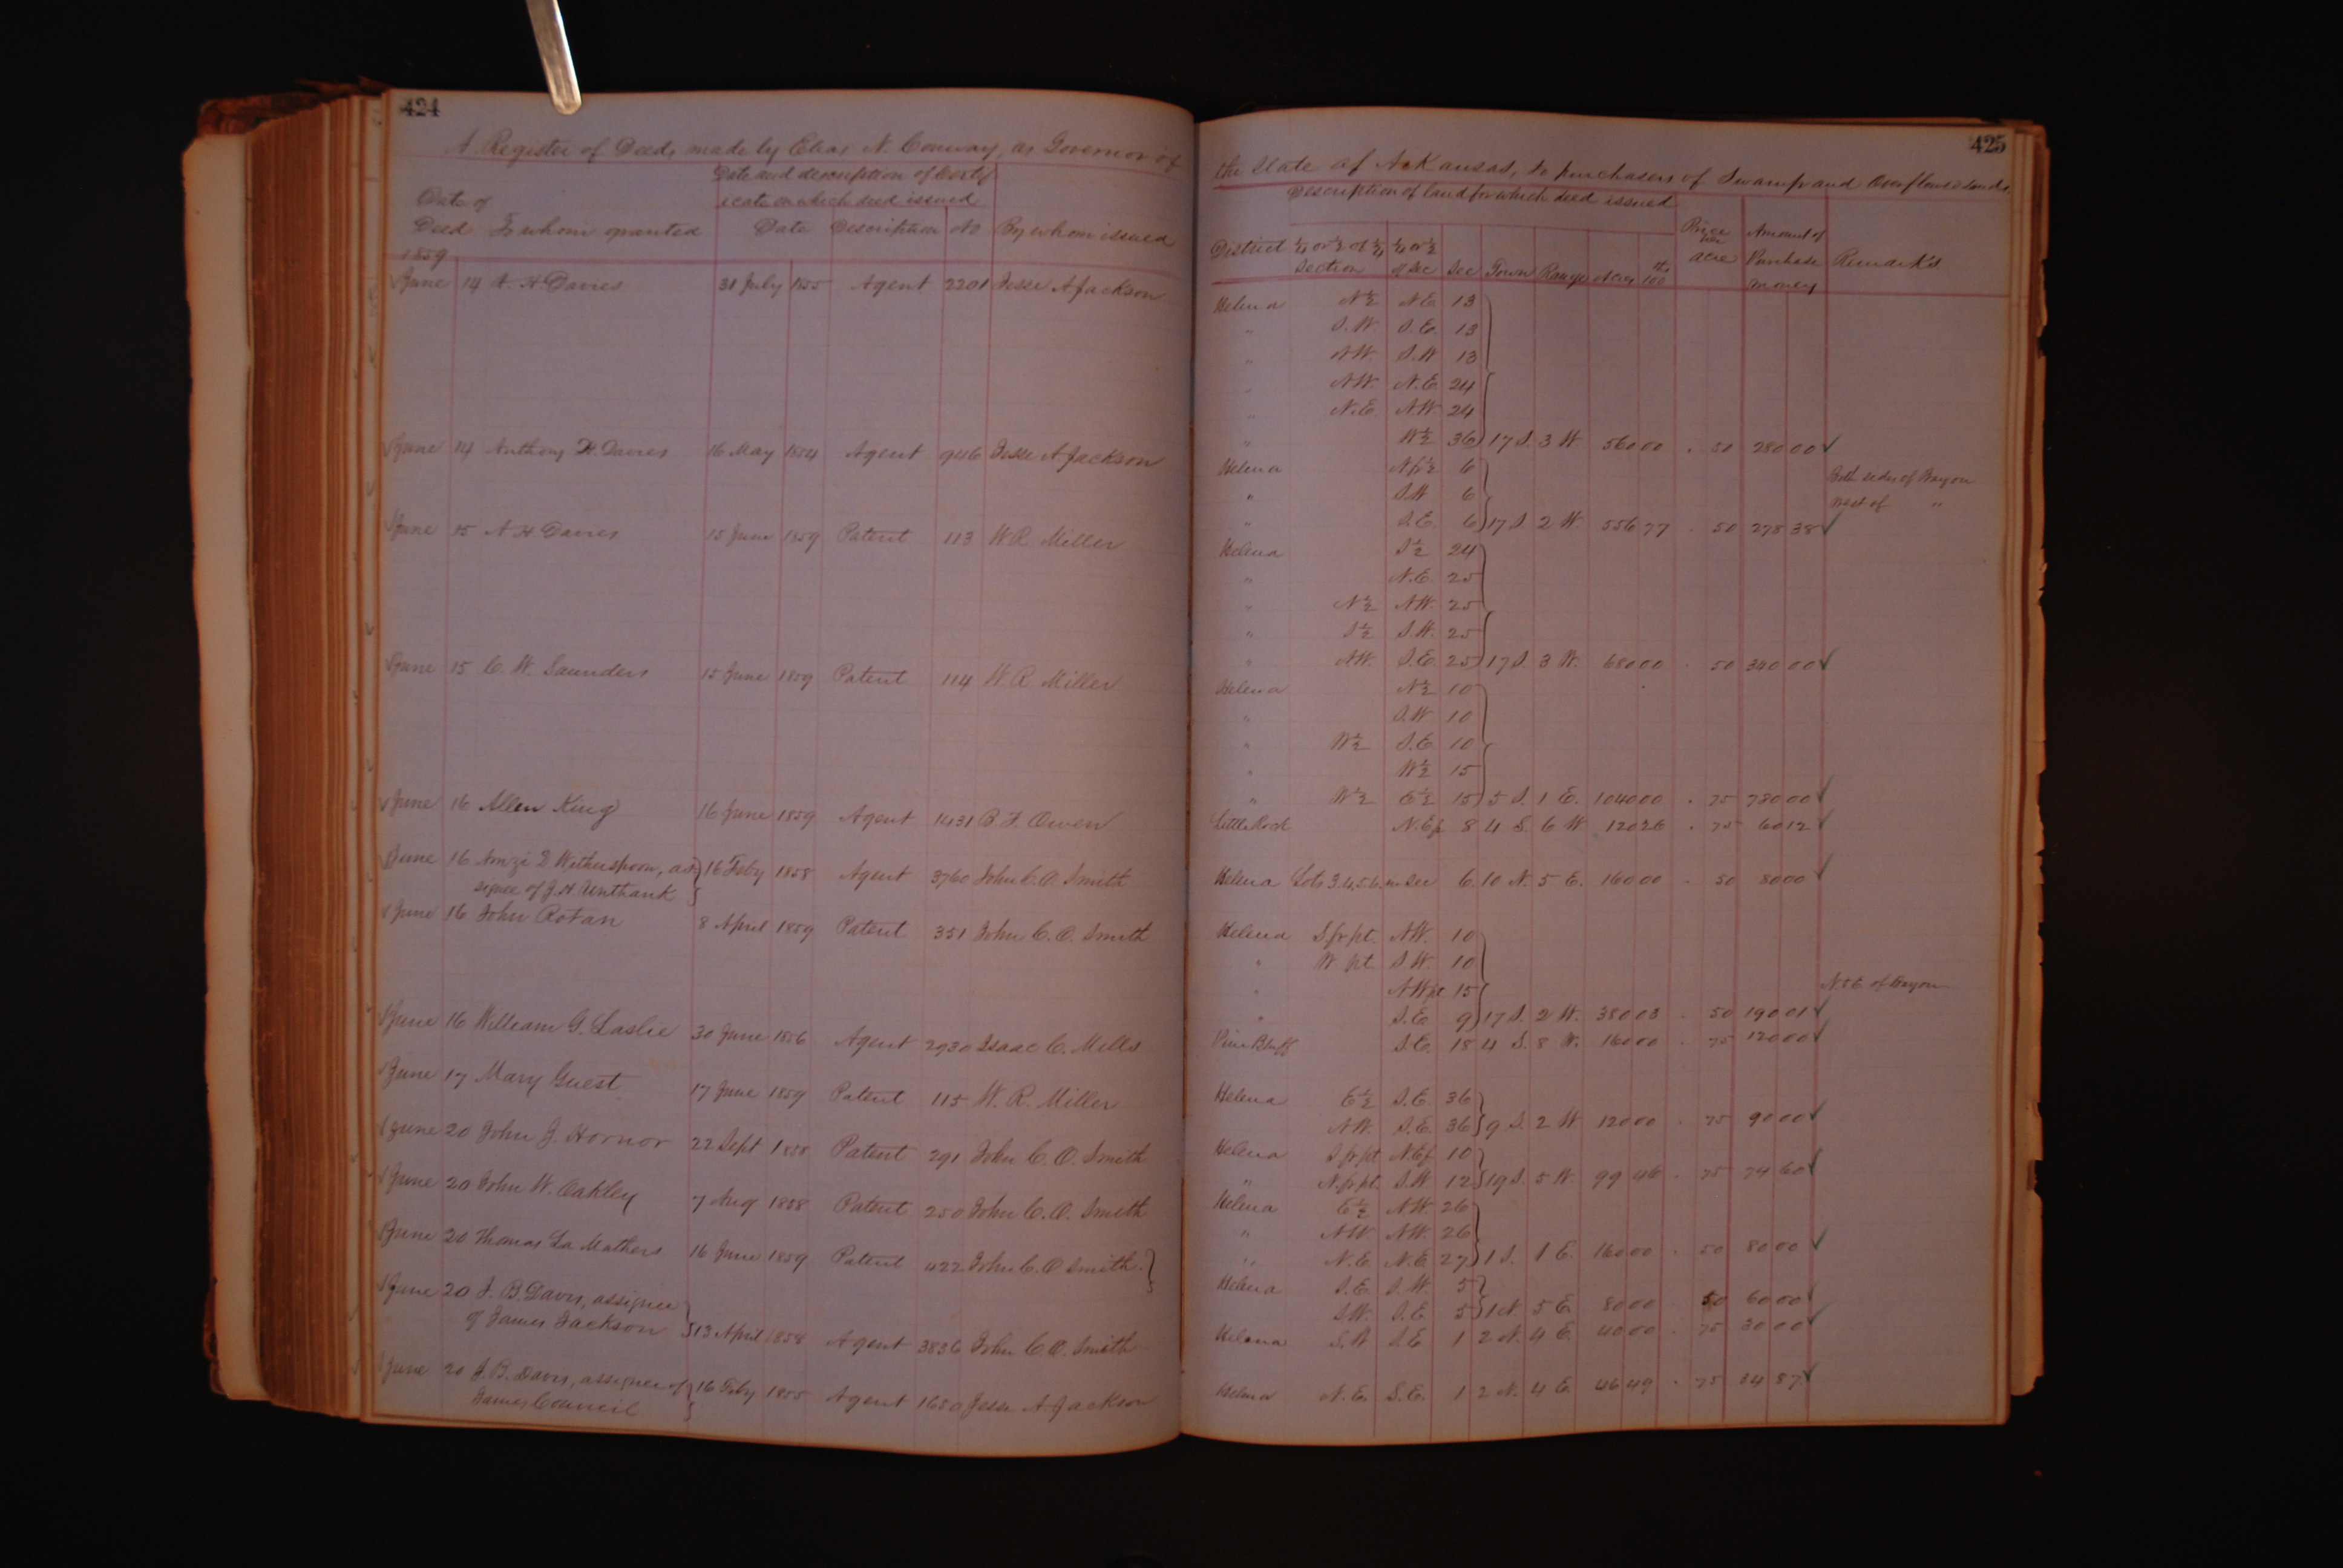 424
A Register of Deeds made by Elias N. Conway, as Governor of
Date and description of Certif
icate on which deed issued
Date of
Deed To whom granted Date Description No By whom issued
1859
June 14 A. H Davies 31 July 1855 Agent 2201 Jesse A Jackson
June 14 Anthony H. Davies 16 May 1854 Agent 946 Jesse A Jackson
June 15 A H Davies 15 June 1859 Patent 113 W R Miller
June 15 C. W. Saunders 15 June 1859 Patent 114 W R Miller
June 16 Allen King 16 June 1859 Agent 1431 B. F. Owen
June 16 Amzi D Witherspoon, as 16 Feby 1858 Agent 3760 John C. O. Smith
signee of J. H. Unthank
June 16 John Rotan 8 April 1859 Patent 351 John C. O. Smith
June 16 William G. Laslie 30 June 1856 Agent 2930 Isaac C. Mills
June 17 Mary Guest 17 June 1859 Patent 115 W. R. Miller
June 20 John J. Hornor 22 Sept 1858 Patent 291 John C. O. Smith
June 20 John W. Oakley 7 Aug 1858 Patent 250 John C. O. Smith
June 20 Thomas La Mathers 16 June 1859 Patent 422 John C. O Smith
June 20 J. B. Davis, assignee
of James Jackson 13 April 1858 Agent 3836 John C. O. Smith
June 20 J. B. Davis, assignee of 16 Feby 1855 Agent 1680 Jesse A Jackson
James Council
425
the State of Arkansas, to purchasers of Swamp and Overflowed Lands
Description of land for which deed issued
District ¼ or ½ of ¼ section ¼ or ½ of sec Sec Town Range Acres ths 100 Price per acre Amount of Purchase money Remarks
Helena N½ N.E. 13
" S.W. S.E. 13
" N.W. S.W 13
" N.W. N.E. 24
" N.E. N.W. 24
" W½ 36 17 S. 3 W 560 00 . 50 280 00
Helena N fr ½ 6 Both sides of Bayou
" S.W 6 West of "
" S.E. 6 17 S. 2 W. 556 77 . 50 278 38
Helena S½ 24
" N.E. 25
" N½ N.W. 25
" S½ S.W. 25
" N.W. S.E. 25 17 S. 3 W. 680 00 . 50 340 00
Helena N½ 10
" S.W 10
" W½ S.E. 10
" W½ 15
" W½ E½ 15 5 S. 1 E. 1040 00 . 75 780 00
Little Rock N.E f 8 4 S. 6 W 120 26 . 75 60 12
Helena Lots 3.4.5.6. in Sec 6. 10 N. 5 E. 160 00 . 50 80 00
Helena S fr pt. N.W. 10
" W. pt. S.W. 10
" N.W pt 15 N. & E of Bayou
" S.E. 9 17 S. 2 W. 380 03 . 50 190 01
Pine Bluff S.E. 18 4 S. 8 W. 160 00 . 75 120 00
Helena E½ S.E. 36
N.W. S.E. 36 9 S. 2 W 120 00 . 75 90 00
Helena S fr pt N.E f 10
" N. fr pt. S.W. 12 19 S. 5 W. 99 46 . 75 74 60
Helena E½ N.W. 26
" N.W N.W. 26
" N.E. N.E 27 1 S. 1 E. 160 00 . 50 80 00
Helena S.E. S.W. 5
S.W. S.E. 5 1 N 5 E 80 00 50 60 00
Helena S.W S.E 1 2 N. 4 E. 40 00 . 75 30 00
Helena N.E. S.E. 1 2 N. 4 E. 46 49 . 75 34 87